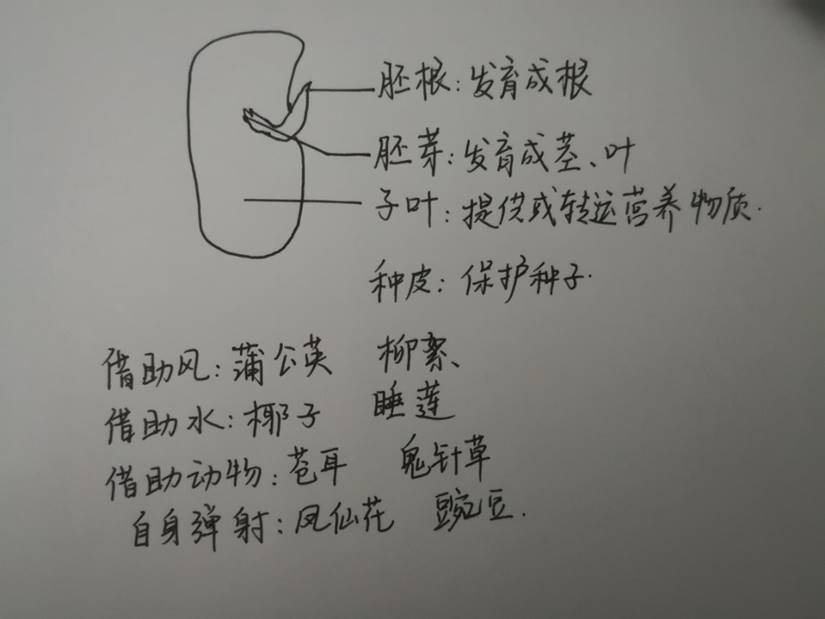 胚根：发育成根
胚芽：发育成茎、叶
子叶：提供或转运营养物质.
种皮：保护种子.
借助风：蒲公英 柳絮、
借助水：椰子 睡莲
借助动物：苍耳 鬼针草
自身弹射：凤仙花 豌豆.